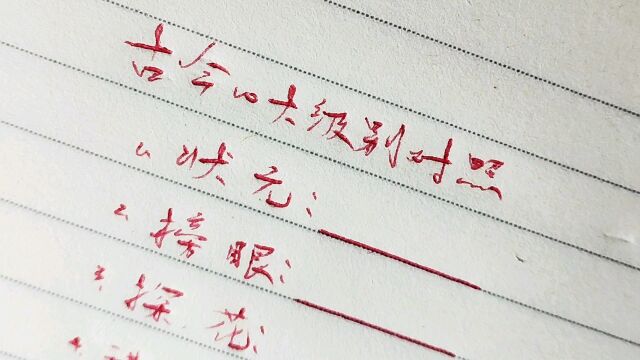 古今10大级别对照
1. 状元:
2. 榜眼:
3. 探花:
4.